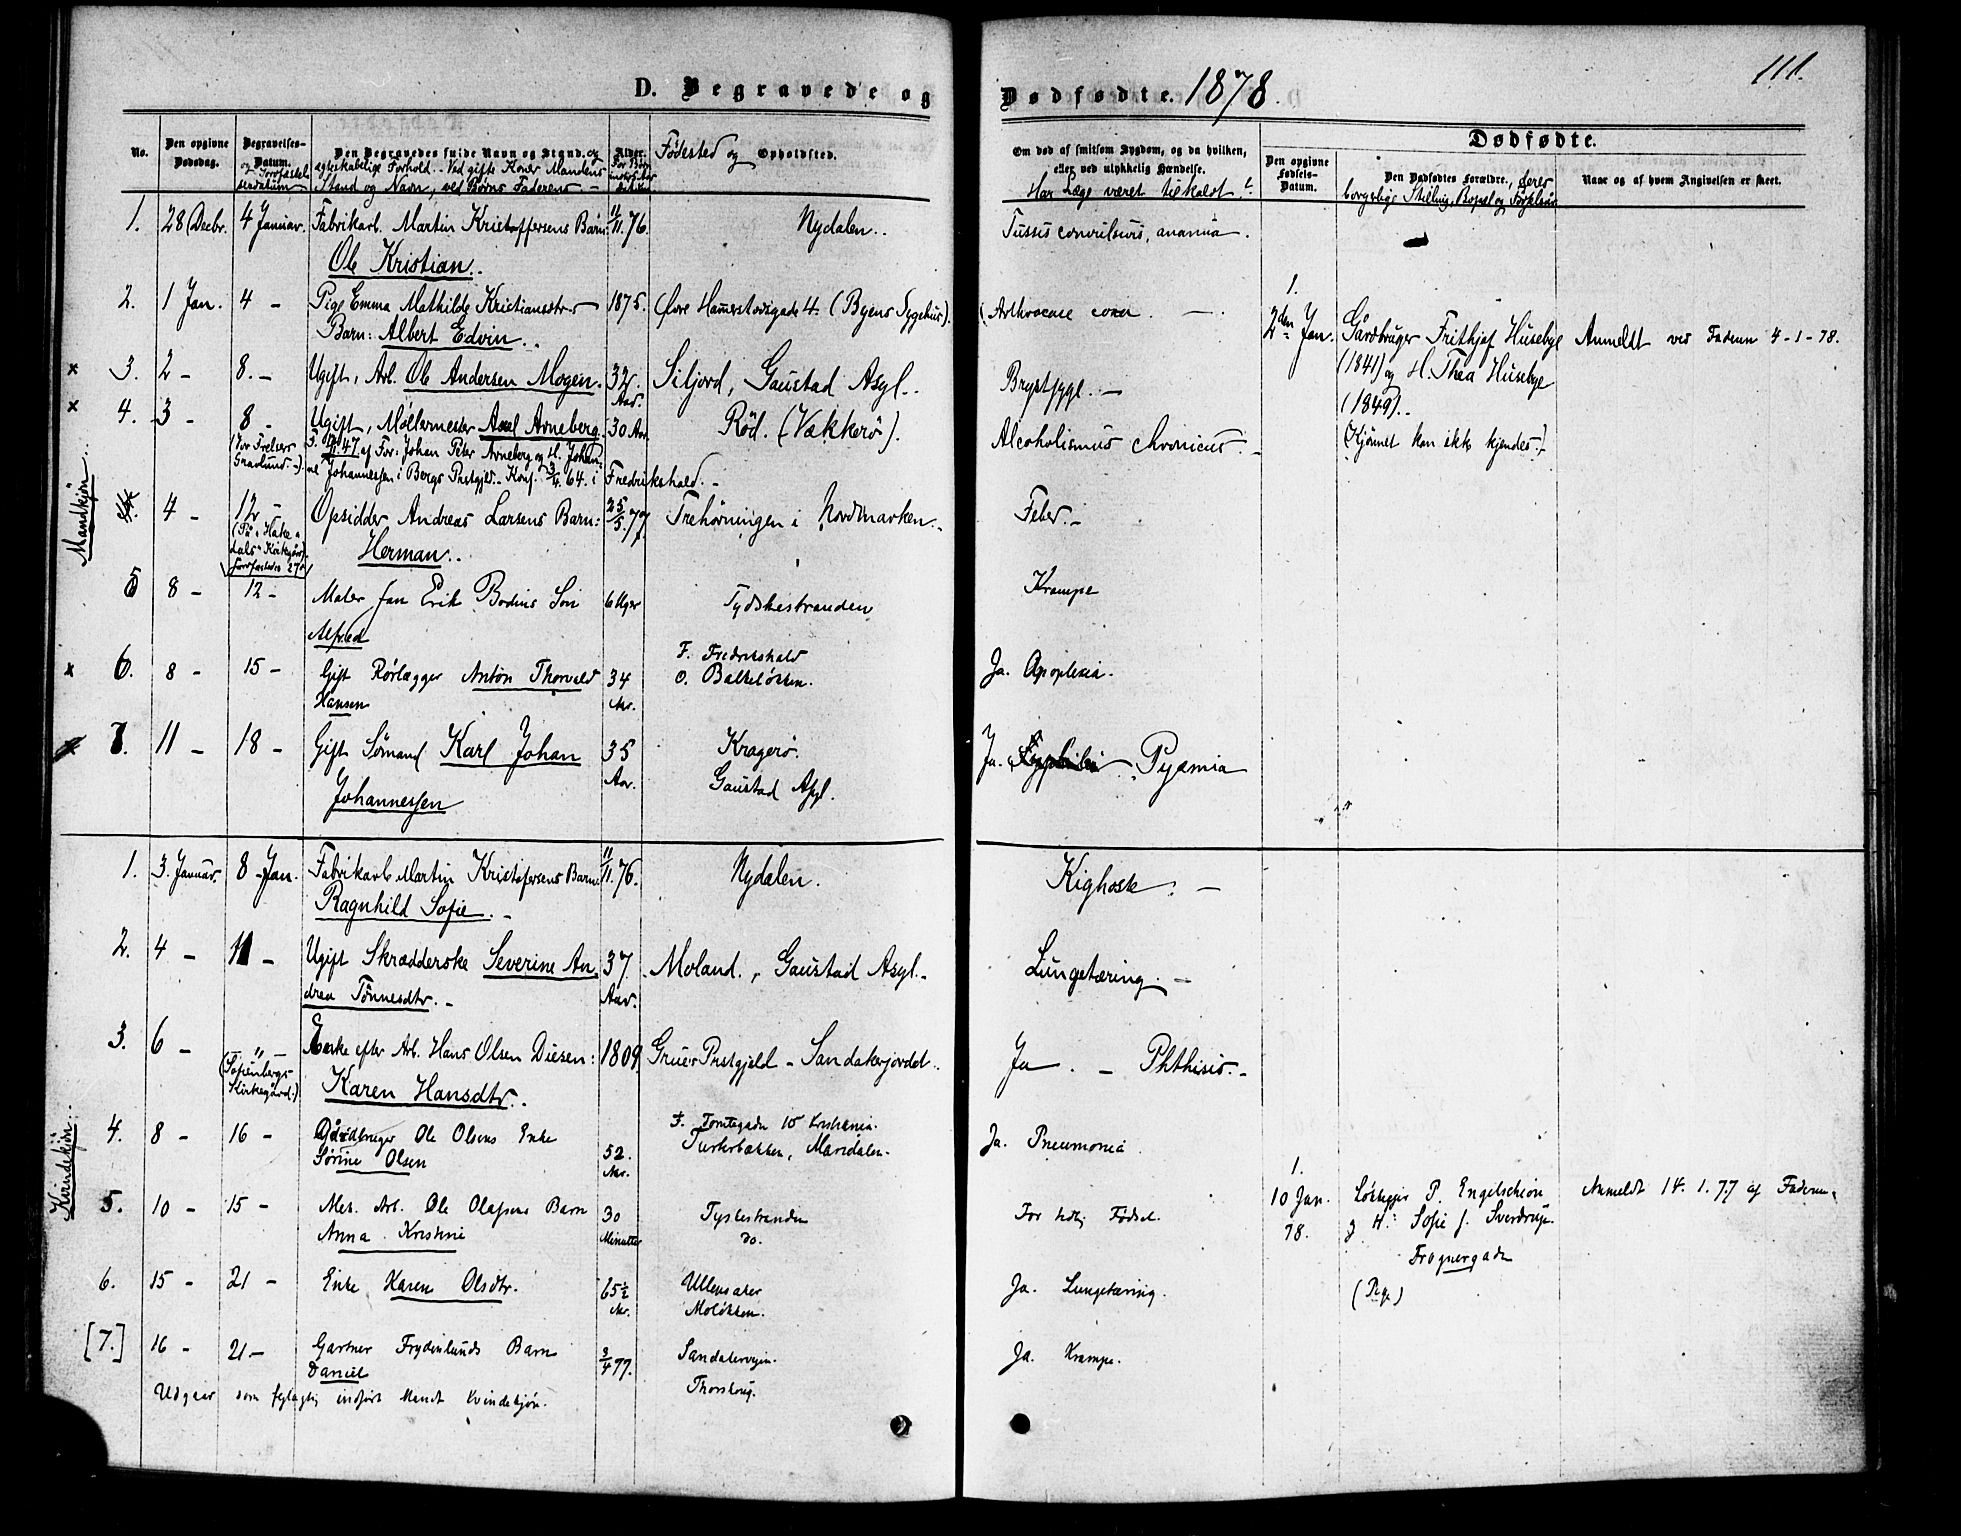 111.
D. Begravede og Dødfødte. 1878.
No.
Den opgivne Dødsdag.
Begravelses-Datum.
og Jordfæstelsesdatum
Den Begravedes fulde Navn og Stand, og
ægteskabelige Forhold. Ved gifte Koner Mandens
Stand og Navn, ved Børns Faderens –
Alder.
Fødested og Opholdssted.
Om død af smitsom Sygdom, og da hvilken,
eller ved ulykkelig Hændelse.
Har Læge været tilkaldt?
Dødfødte.
Den opgivne Fødsels-Datum.
Den Dødfødtes Forældre, deres
borgerlige Stilling, Bopæl og Fødselsår
Naar og af hvem Angivelsen er skeet.
Mandkjøn.
1. 28 Decbr. 4 Januar. Fabrikarb. Martin Kristoffersens Barn: 11/11.76. Nydalen. Tussis convulsivus, anæmia.
Ole Kristian.
2. 1 Jan. 4 – Pige Emma Mathilde Kristiansdtr. 1875. Øvre Hammerstadsgade 4. (Byens Sygehus). Arthrocace coxæ. –
Barn: Albert Edvin.
1.
2den Jan. Gårdbruger Frithjof Husebye Anmeldt ved Faderen 4-1-78.
(1841) og H. Thea Husebye
(1849).
(Kjønnet kan ikke kjendes.)
3. 2 – 8. – Ugift, Arb. Ole Andersen Mogen. 32 Aar. Siljord, Gaustad Asyl. Brystsygd. –
4. 3 – 8 – Ugift, Møllermester Axel Arneberg. 30 Aar Rød. (Vækkerø). Alcoholismus chronicus. –
(Vor Frelsers Gravlund –)
47 af For: Johan Peter Arneberg og H. Johan-
ne Johannessen i Bergs Prstgjeld. Konf. 64. i Fredrikshald. –
4 – 12 – Opsidder Andreas Larsens Barn: 25/5.77 Trehørningen i Nordmarken. Feber. –
(På Hakedals Kirkegård).
Herman.
5 8 – 12 – Maler Jan Erik Bodins Søn 6 Uger Tydskestranden Krampe
Alfred
6. 8 – 15 – Gift Rørlægger Anton Thorvald 34 Aar. F. Fredrikshald Ja. Apoplexia.
Hansen
O. Bakkeløkken.
7. 11 – 18 – Gift Sømand Karl Johan 35 Aar. Kragerø. Ja. Pyæmia
Johannessen
Gaustad Asyl.
Kvindekjøn.
1. 3. Januar. 8 – Jan. Fabrikarb. Martin Kristofersens Barn: 11/11.76. Nydalen. Kighoste. –
Ragnhild Sofie. –
2. 4 – 11 – Ugift Skrædderske Severine An- 37 Aar. Moland. Gaustad Asyl. – Lungetæring. –
drea Tønnesdtr. –
3. 6 – " – Enke efter Arb. Hans Olsen Diesen: 1809 Grue Prstgjeld – Sandakerjordet. Ja. – Phthisis. –
(Sofienbergs Kirkegård.)
Karen Hansdtr.
4. 8 – 16 – Gårdbruger Ole Olsens Enke 52. Aar. F. Tomtegaden 15 Kristiania. Ja. Pneumonia
Sørine Olsen
Turterbakken, Maridalen.
5. 10 – 15 – Arb. Ole Olafsens Barn 30 Minutter Tyskestranden For tidlig Fødsel.
Anna Kristine
do.
1.
10 Jan. 78. Løkkeejer P. Engelschiøn Anmeldt 14. 1. 77 af Faderen.
og H: Sofie f. Sverdrup.
Frognergaden
(Pige)
6. 15 – 21 – Enke Karen Olsdtr. 65½ Aar. Ullensaker Ja. Lungetæring.
Moløkken.
[7.] 16 – 21 – Gartner Frydenlunds Barn 3/4 77. Sandakerveien. Ja. Krampe.
Daniel
Thorshoug.
Udgaar som feilagtig indført blandt Kvindekjøn.